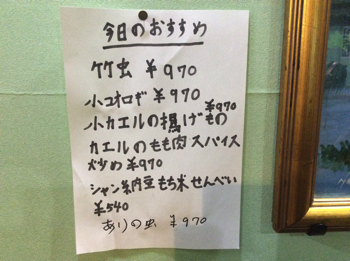 今日のおすすめ
竹虫 ¥970
小コオロギ ¥970
小カエルの揚げもの ¥970
カエルのもも肉スパイス
炒め ¥970
シャン納豆もち米せんべい
¥540
ありの虫 ¥970